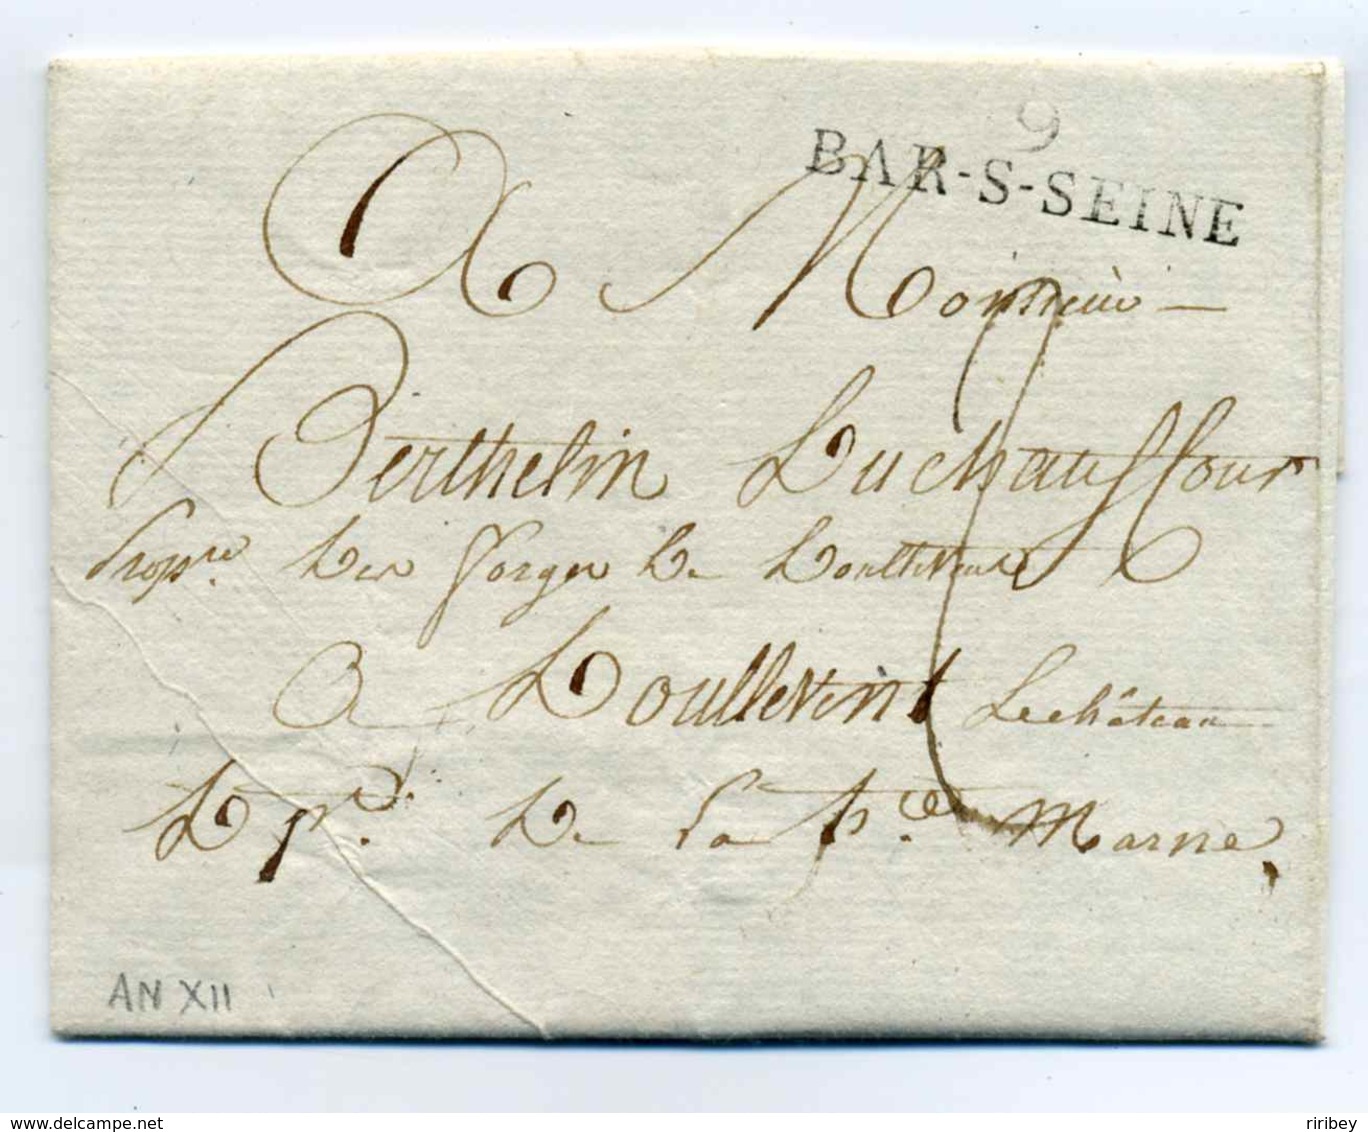 9
BAR-S-SEINE
A Monsieur
Berthelin Duchauffour
Propre. des forges de Doullevent
A Doullevent Le château
Dpt. De La hte. Marne
AN XII
delcampe.net
riribey